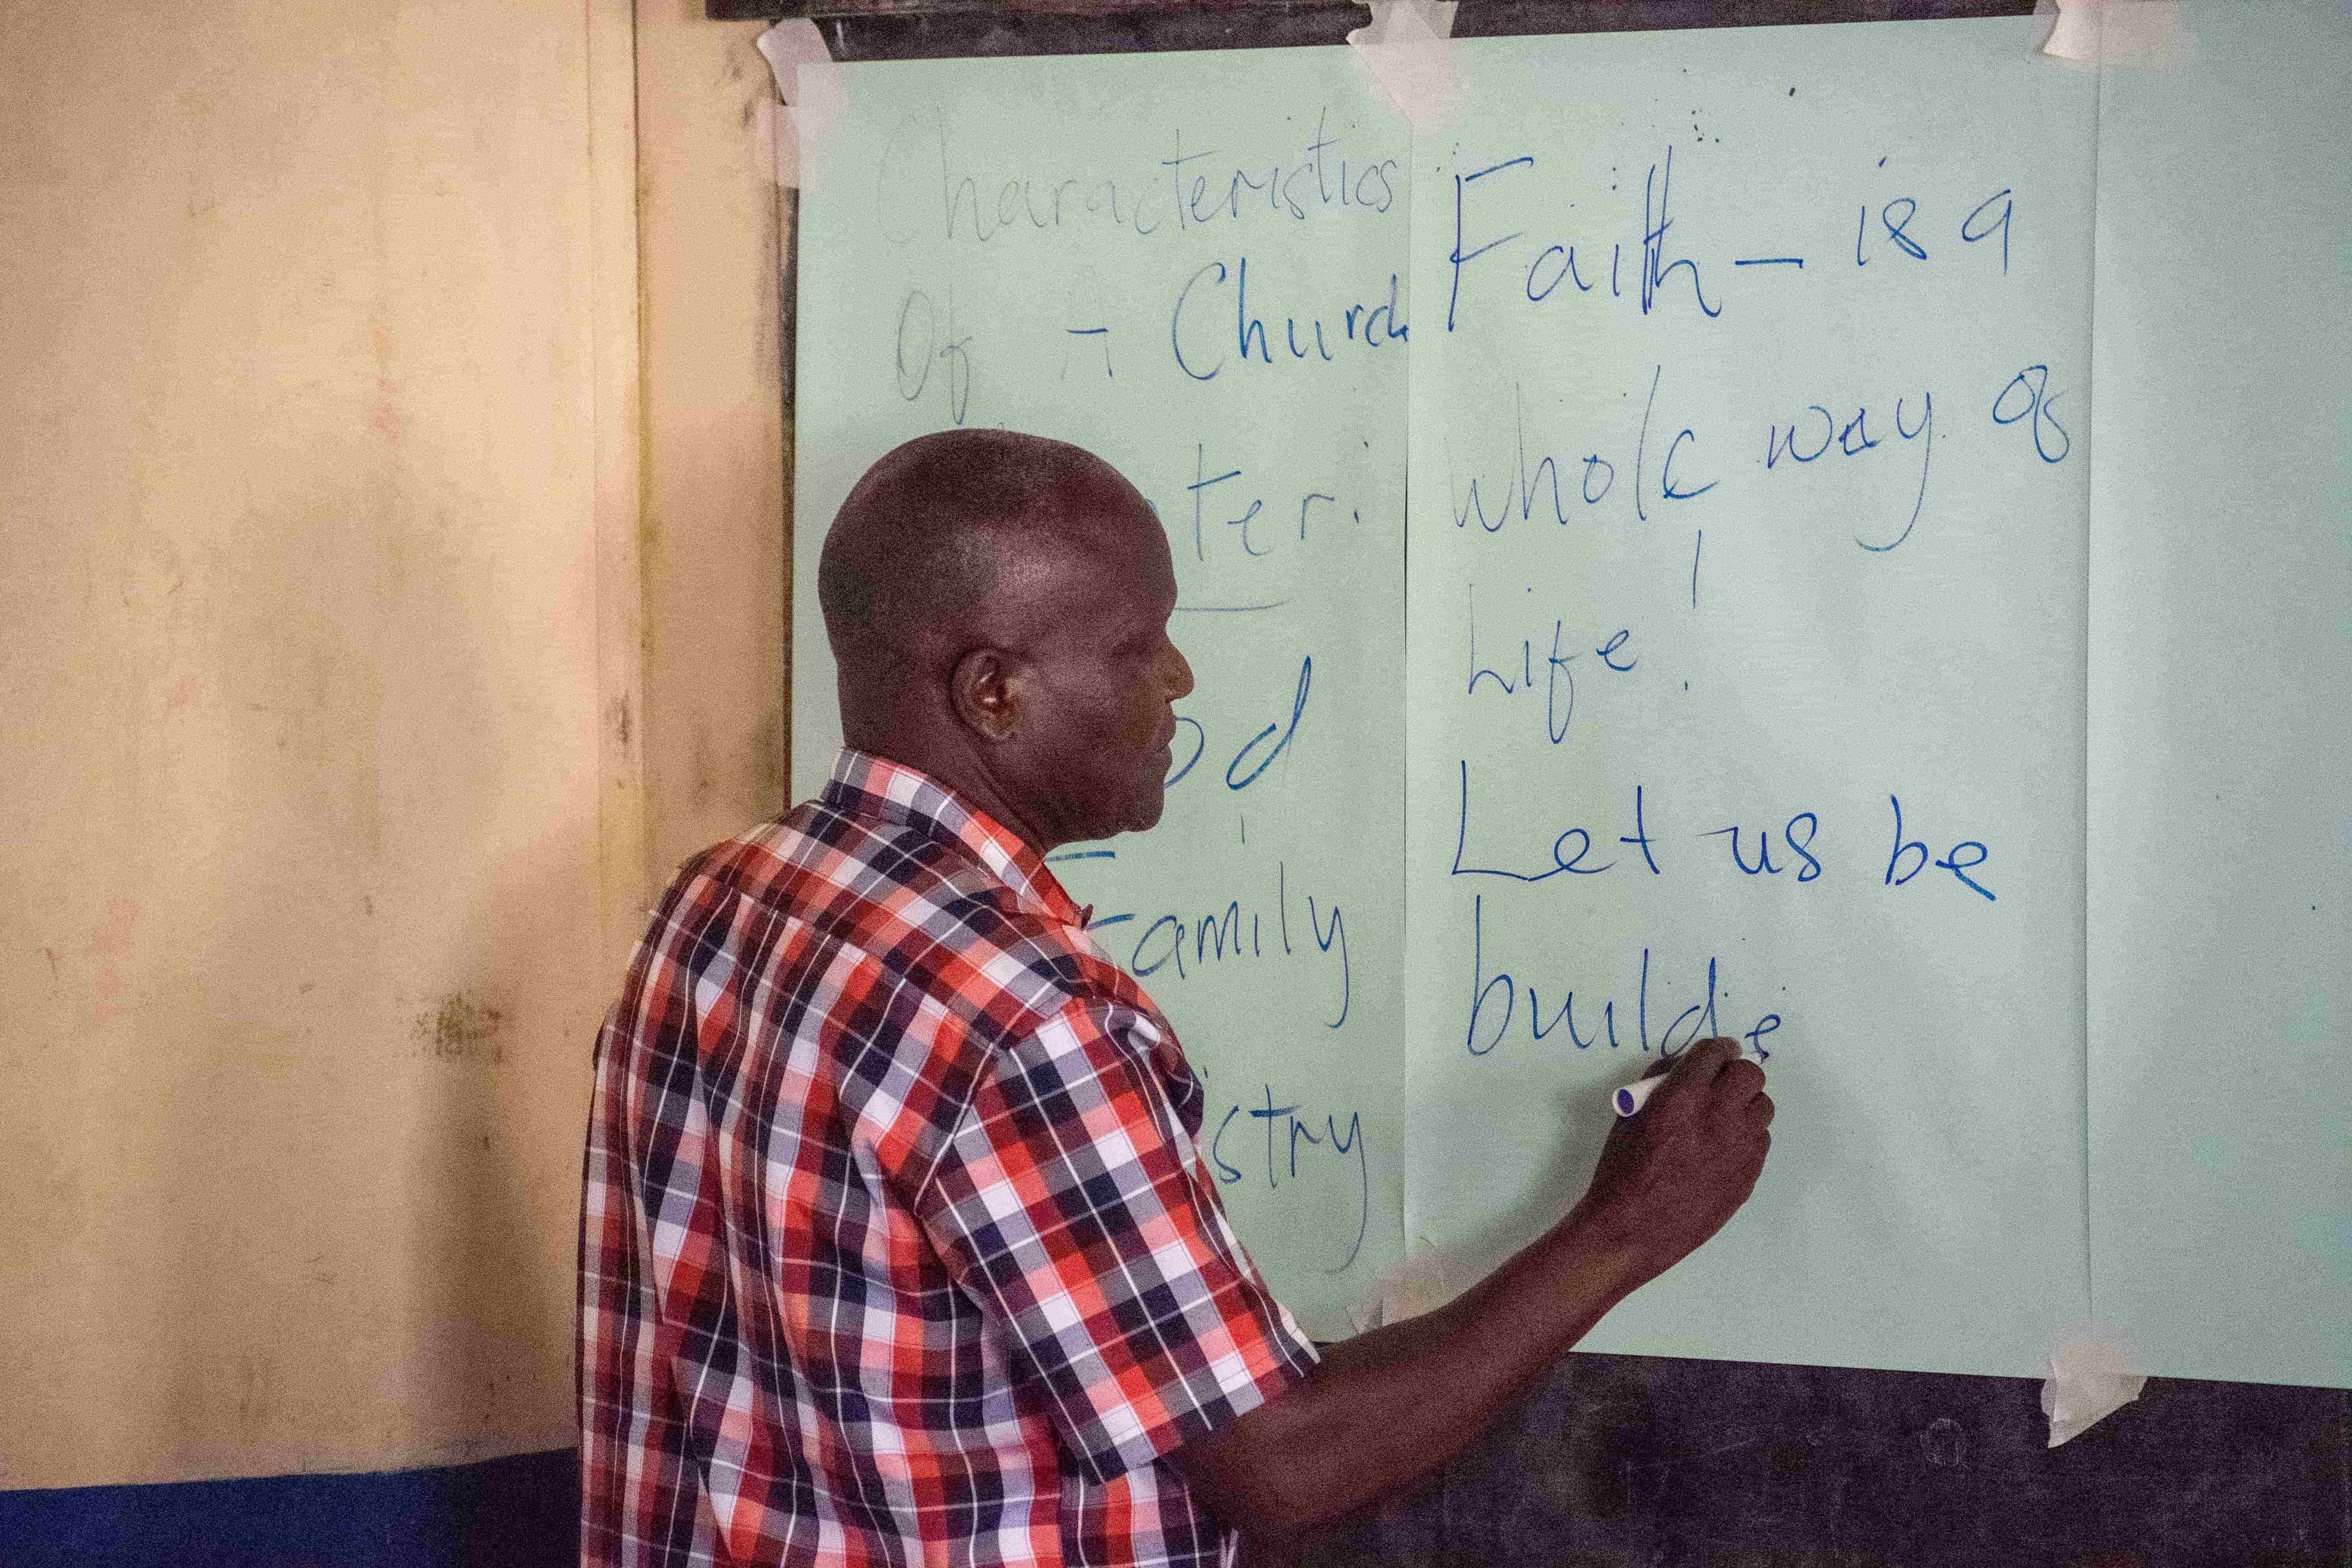 Characteristics
Of A Church
Family
Faith - is a
whole way of
Life!
Let us be
builde